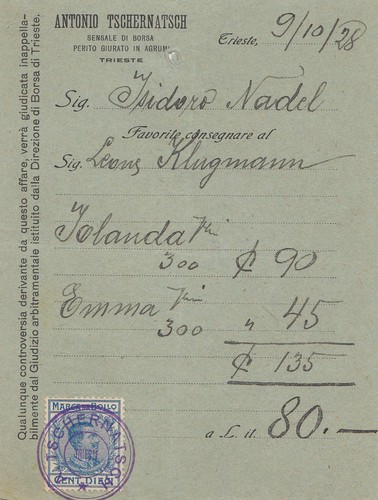 ANTONIO TSCHERNATSCH
SENSALE DI BORSA
PERITO GIURATO IN AGRUMI
TRIESTE
Trieste, 9/10/28
Sig. Isidoro Nadel
Favorite consegnare al
Sig. Leone Klugmann
Iolanda
300 ₡ 90
Emma
300 " 45
₡ 135
a L. it. 80.—
MARCA DA BOLLO
CENT. DIECI
TSCHERNATSCH
TRIESTE
Qualunque controversia derivante da questo affare, verrà giudicata inappella-
bilmente dal Giudizio arbitramentale istituito dalla Direzione di Borsa di Trieste.